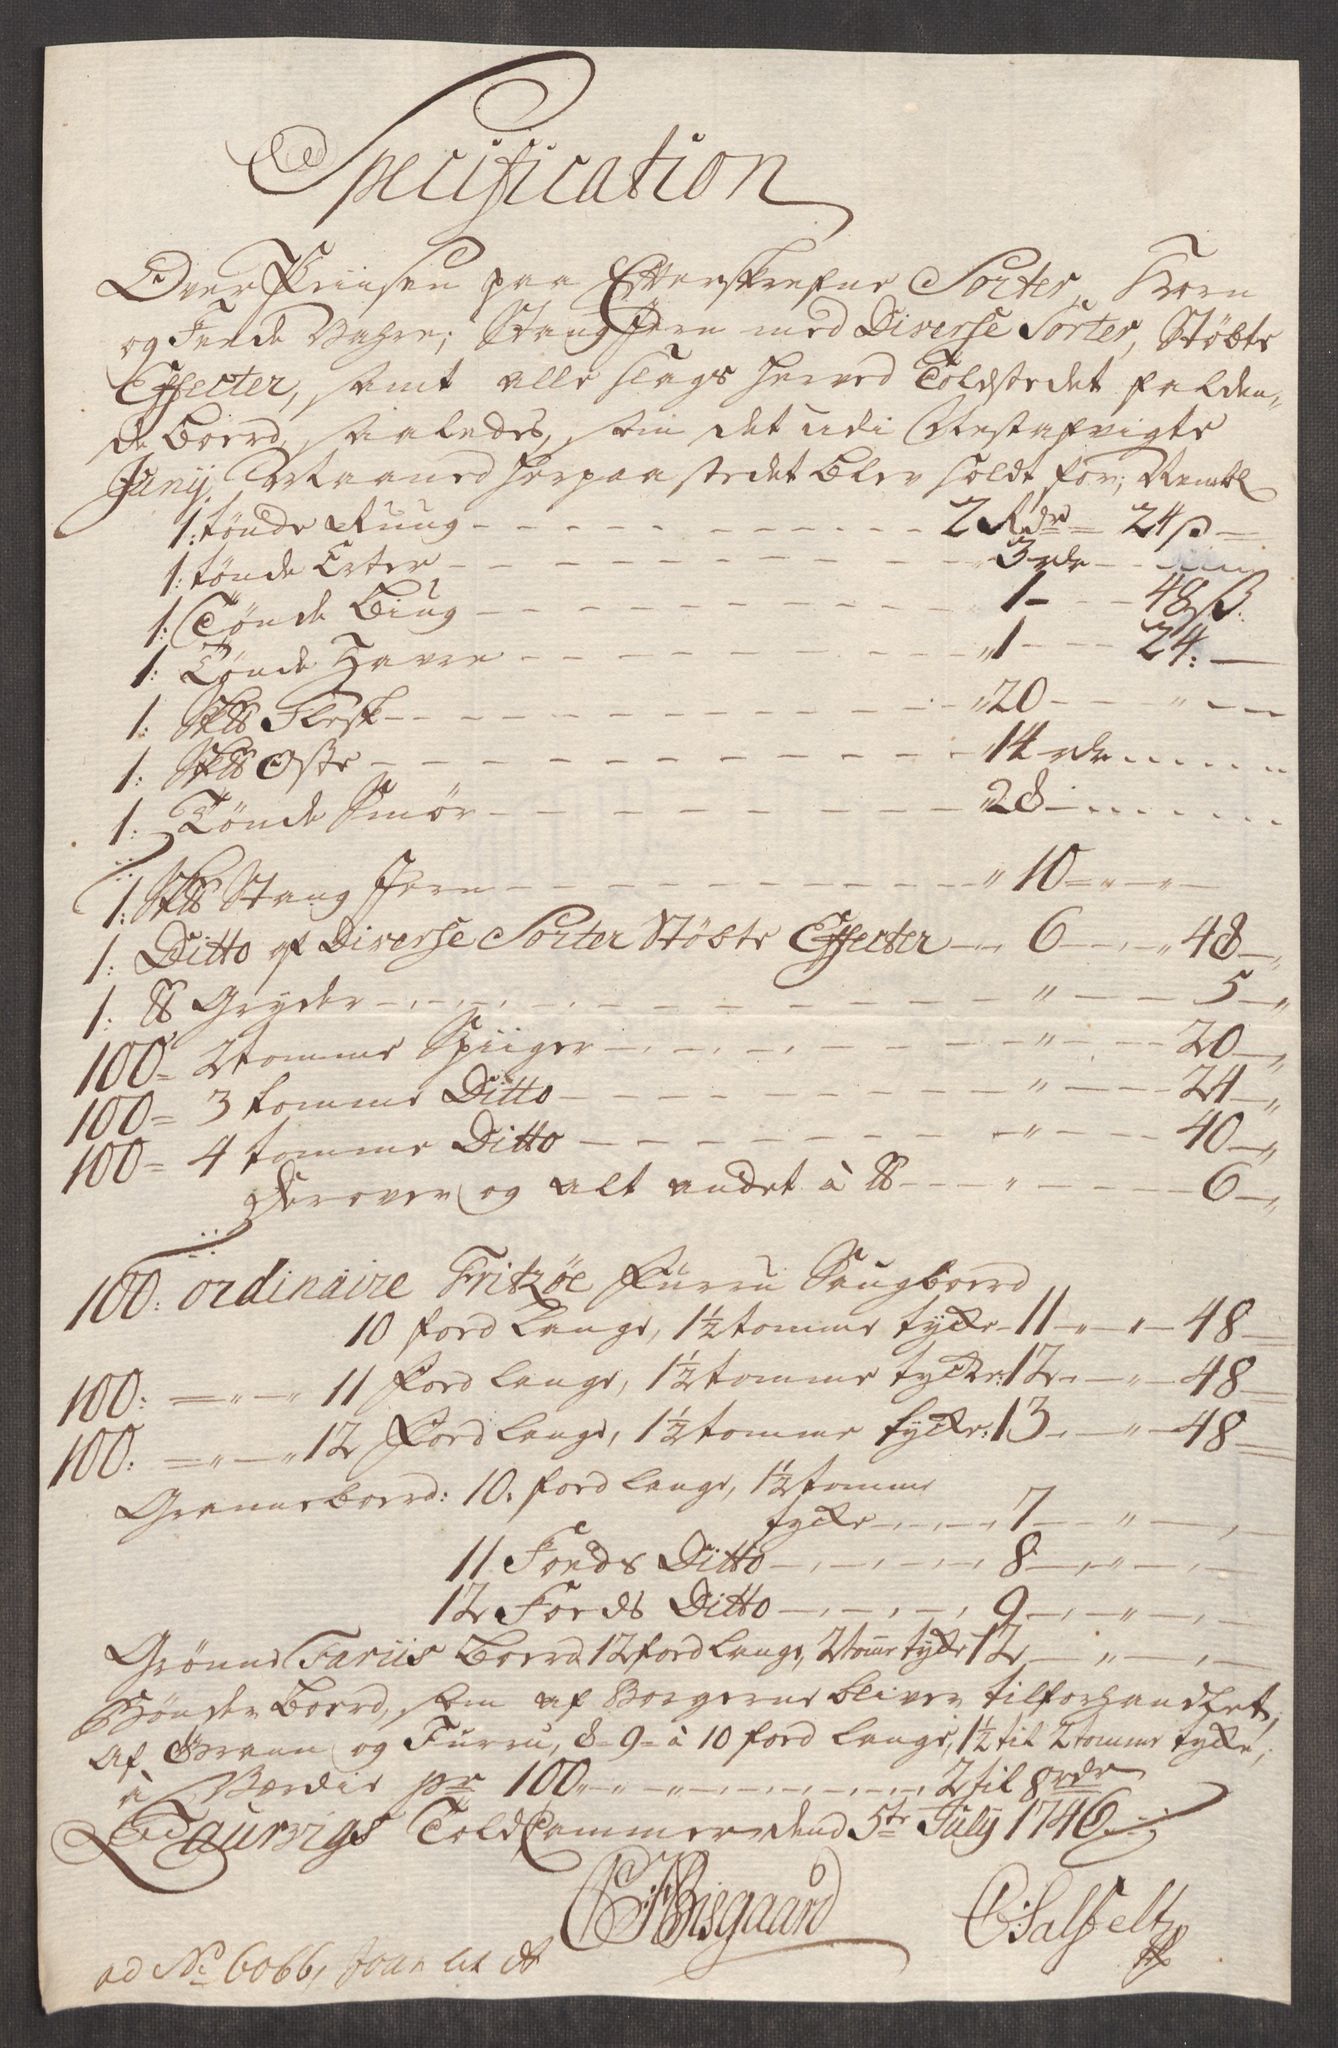 Specification
Over Priisen paa Efterskrefne Sorter, Korn
og Fede Vahre; Stang Jern med Diverse Sorter, Støbte
Effecter, samt alle slags herved Toldstedet falden-
de Boerd, saaledes, som det udi Nestafvigte
Junij Maaned her paa stedet blev soldt for; Nembl
1: tønde Rug 2 Rdr 24 β
1: tønde Erter 3 rdr
1: Tønde Biug 1 - 48 β.
1: Tønde Havre 1 24:
1: Sk℔ Flesk 20
1: Sk℔ Oste 14 rdr
1: Tønde Smør 28
1: Sk℔ Stang Jern 10
1: Ditto af Diverse Sorter Støbte Effecter 6 48
1: ℔ Gryder " 5
100 = 2 tomme Spiiger " 20
100 = 3 tomme Ditto " 24
100 = 4 tomme Ditto " 40
Derover og alt andet à ℔ " 6
100: ordinaire Fritzøe Furru Saugboerd
10 fod Lange, 1½ tomme tycke 11 " 48
100: = " — " 11 Fod Lange, 1½ tomme tycke: 12 " 48
100: = " — " 12 Fod Lange, 1½ tomme tycke: 13 " 48
Granneboerd: 10. fod lange, 1½ tomme
tycke 7 "
11 Fods Ditto 8 "
12 Fods Ditto 9 "
Grønne Fariis Boerd 12 fod Lange, 2 tome tycke 12 "
Bønder Boerd, som af Borgerne bliver tilforhandlet,
Af Grann og Furru, 8 = 9 = à 10 fod lange, 1½ til 2 tomme tycke,
à Værdie pr 100 2 til 8 rdr
Laurvigs Told Cammer dend 5te July 1746
Bisgaard C: Salfeltz
ad No 6066,